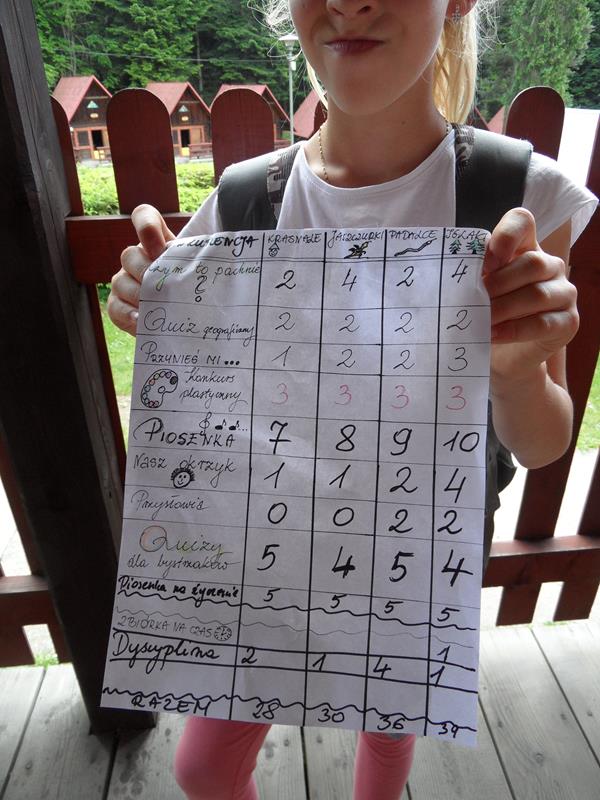 KURENCJA KRASNALE JASZCZURKI PADALCE IGLAKI
Czym to pachnie ? 2 4 2 4
Quiz geograficzny 2 2 2 2
PRZYNIEŚ MI... 1 2 2 3
Konkurs plastyczny 3 3 3 3
PIOSENKA ... 7 8 9 10
Nasz okrzyk 1 1 2 4
Przysłowia 0 0 2 2
Quizy
dla bystrzaków 5 4 5 4
Piosenka na życzenie 5 5 5 5
ZBIÓRKA NA CZAS 1
Dyscyplina 2 1 4 1
RAZEM 28 30 36 39